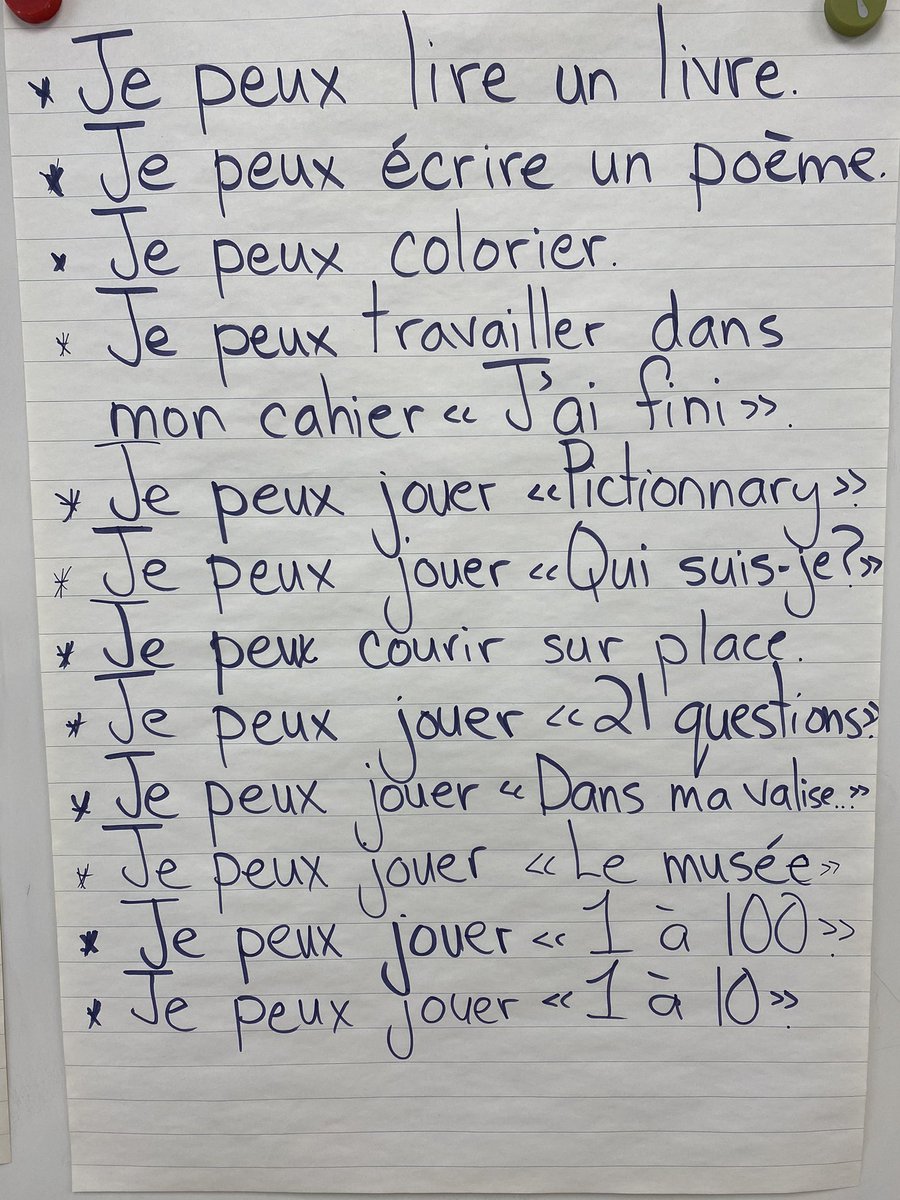 * Je peux lire un livre.
* Je peux écrire un poème.
* Je peux colorier.
* Je peux travailler dans
mon cahier « J'ai fini ».
* Je peux jouer « Pictionnary »
* Je peux jouer « Qui suis-je? »
* Je peux courir sur place.
* Je peux jouer « 21 questions».
* Je peux jouer « Dans ma valise... »
* Je peux jouer « Le musée »
* Je peux jouer « 1 à 100 »
* Je peux jouer « 1 à 10 »